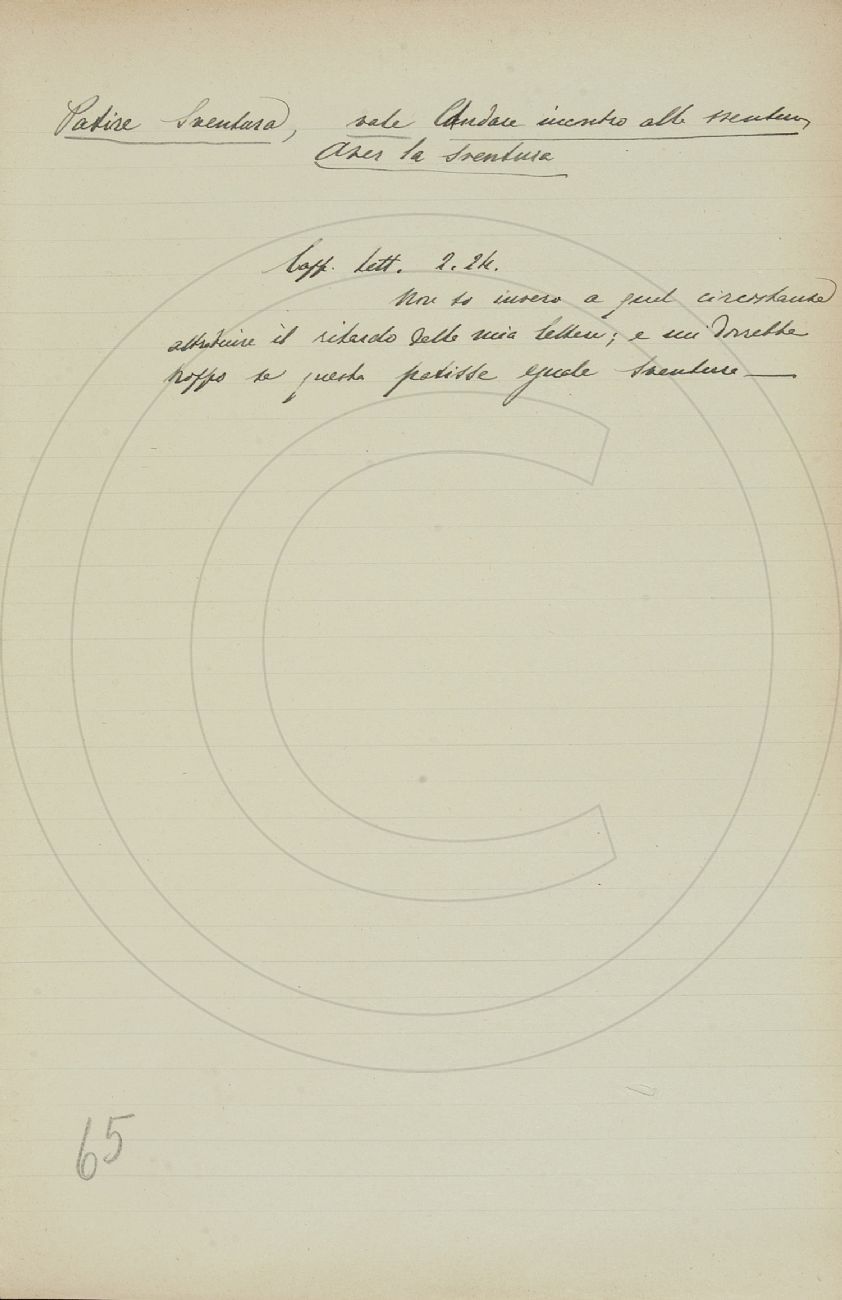 Patire Sventura, vale Andare incontro alle sventure,
Aver la sventura
Capp. Lett. 2. 24.
Non so invero a qual circostanza
attribuire il ritardo della mia lettera; e mi dorrebbe
troppo se questa patisse eguale sventura —
65